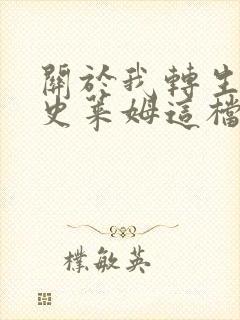 關於我轉生
史萊姆這檔
樸敏英